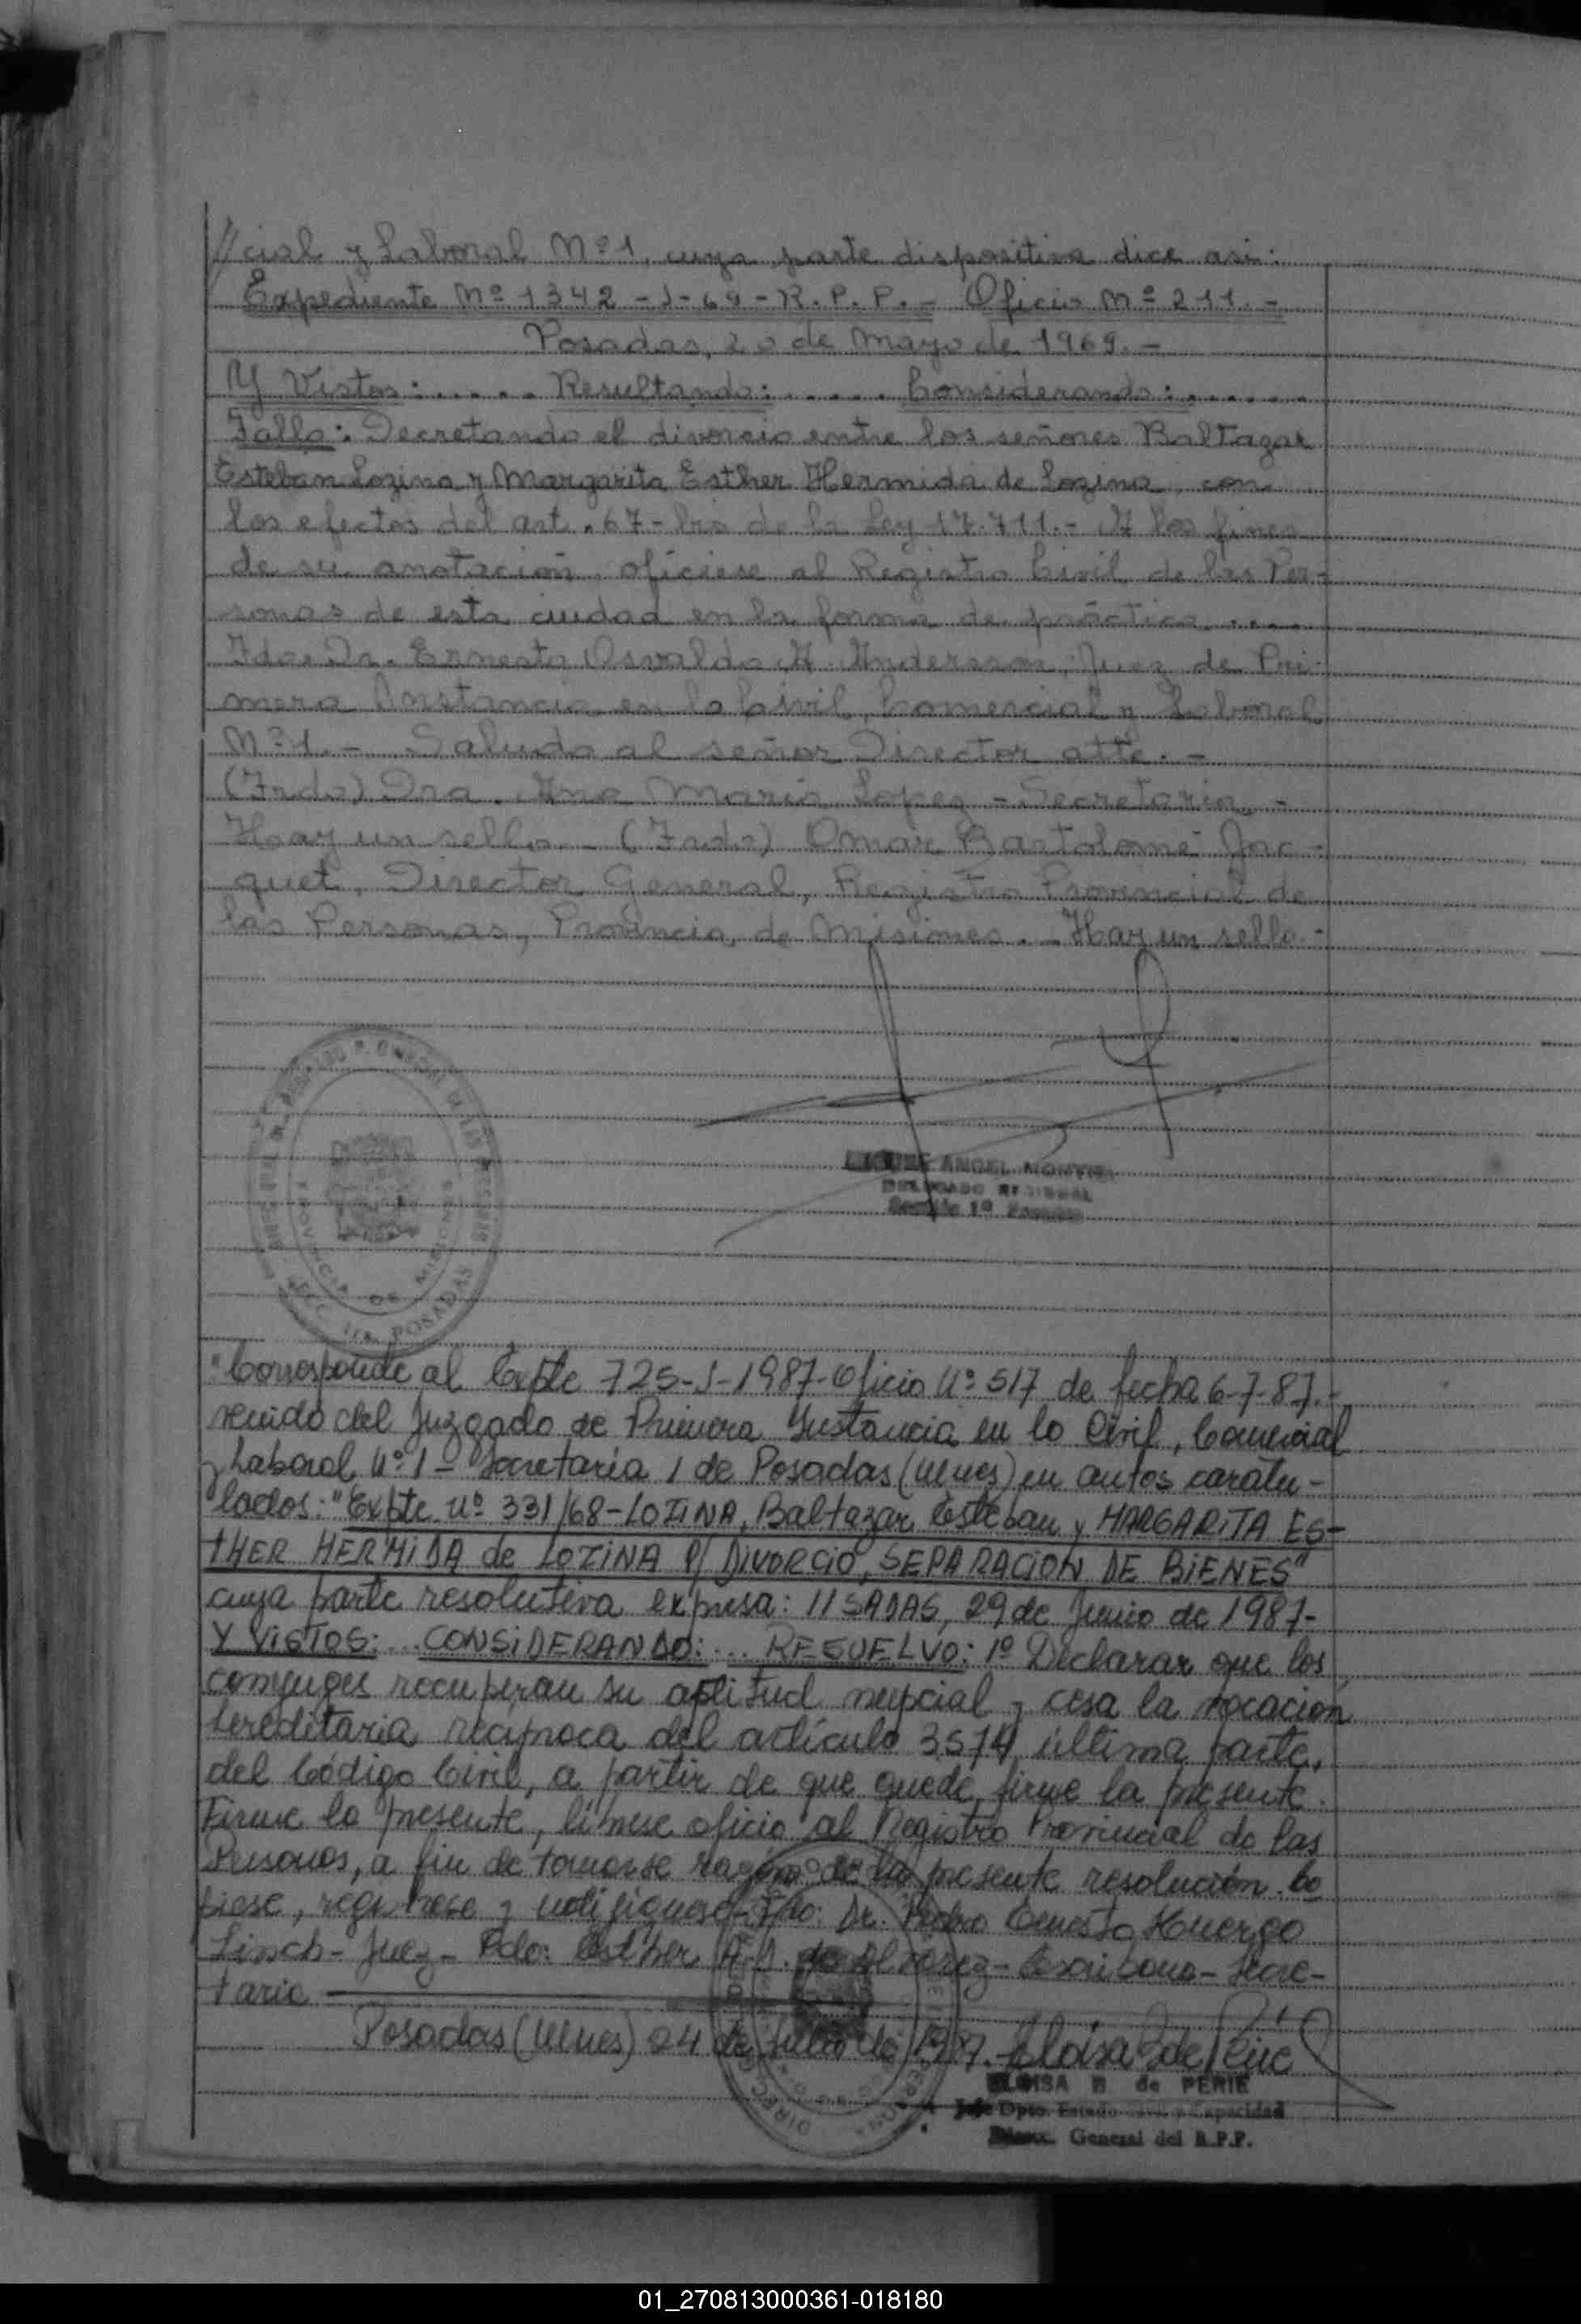 //cial y Laboral Nº1, cuya parte dispositiva dice asi:
Expediente Nº 1342-J-69-R.P.P.- Oficio Nº 211.-
Posadas, 20 de Mayo de 1969.-
Y Vistos: ..... Resultando: ..... Considerando: ......
Fallo: Decretando el divorcio entre los señores Baltazar
Esteban Lozina y Margarita Esther Hermida de Lozina, con
los efectos del art. 67-bis de la Ley 17.711.- A los fines
de su anotación, ofíciese al Registro Civil de las Per-
sonas de esta ciudad en la forma de práctica. ....
Fdo: Dr. Ernesto Osvaldo A. Andersson, Juez de Pri-
mera Instancia en lo Civil, Comercial y Laboral
Nº1.- Saludo al señor Director atte.-
(Frdo) Dra. Ana María Lopez - Secretaria.-
Hay un sello.- (Frdo) Omar Bartolomé Jac-
quet, Director General, Registro Provincial de
las Personas, Provincia de Misiones.- Hay un sello.-
PROVINCIA DE MISIONES
POSADAS
ANGEL
DELEGADO
"Corresponde al Expte 725-J-1987-Oficio Nº 517 de fecha 6-7-87.-
venido del Juzgado de Primera Instancia en lo Civil, Comercial
y Laboral Nº 1 - Secretaría 1 de Posadas (Mnes) en autos caratu-
lados: "Expte Nº 331/68-LOZINA, Baltazar Esteban y MARGARITA ES-
THER HERMIDA de LOZINA P/ DIVORCIO, SEPARACION DE BIENES"
cuya parte resolutiva expresa: //SADAS, 29 de Junio de 1987-
Y VISTOS: ... CONSIDERANDO: ... RESUELVO: 1º Declarar que los
conyuges recuperan su aptitud nupcial y cesa la vocacion
hereditaria reciproca del artículo 3574, última parte,
del Código Civil, a partir de que quede firme la presente.
Firme la presente, líbrese oficio al Registro Provincial de las
Personas, a fin de tomarse razón de la presente resolución. Co
piese, regístrese y notifíquese-Fdo: Dr. Pedro Ernesto Huergo
Linch-Juez- Fdo: Esther de Alvarez-Escribana-Secre-
taria
Posadas (Mnes) 24 de Julio de 1987. Eloisa B de Perié
ELOISA B de PERIE
Jefe Dpto. Estado Civil y Capacidad
General del R.P.P.
01_270813000361-018180